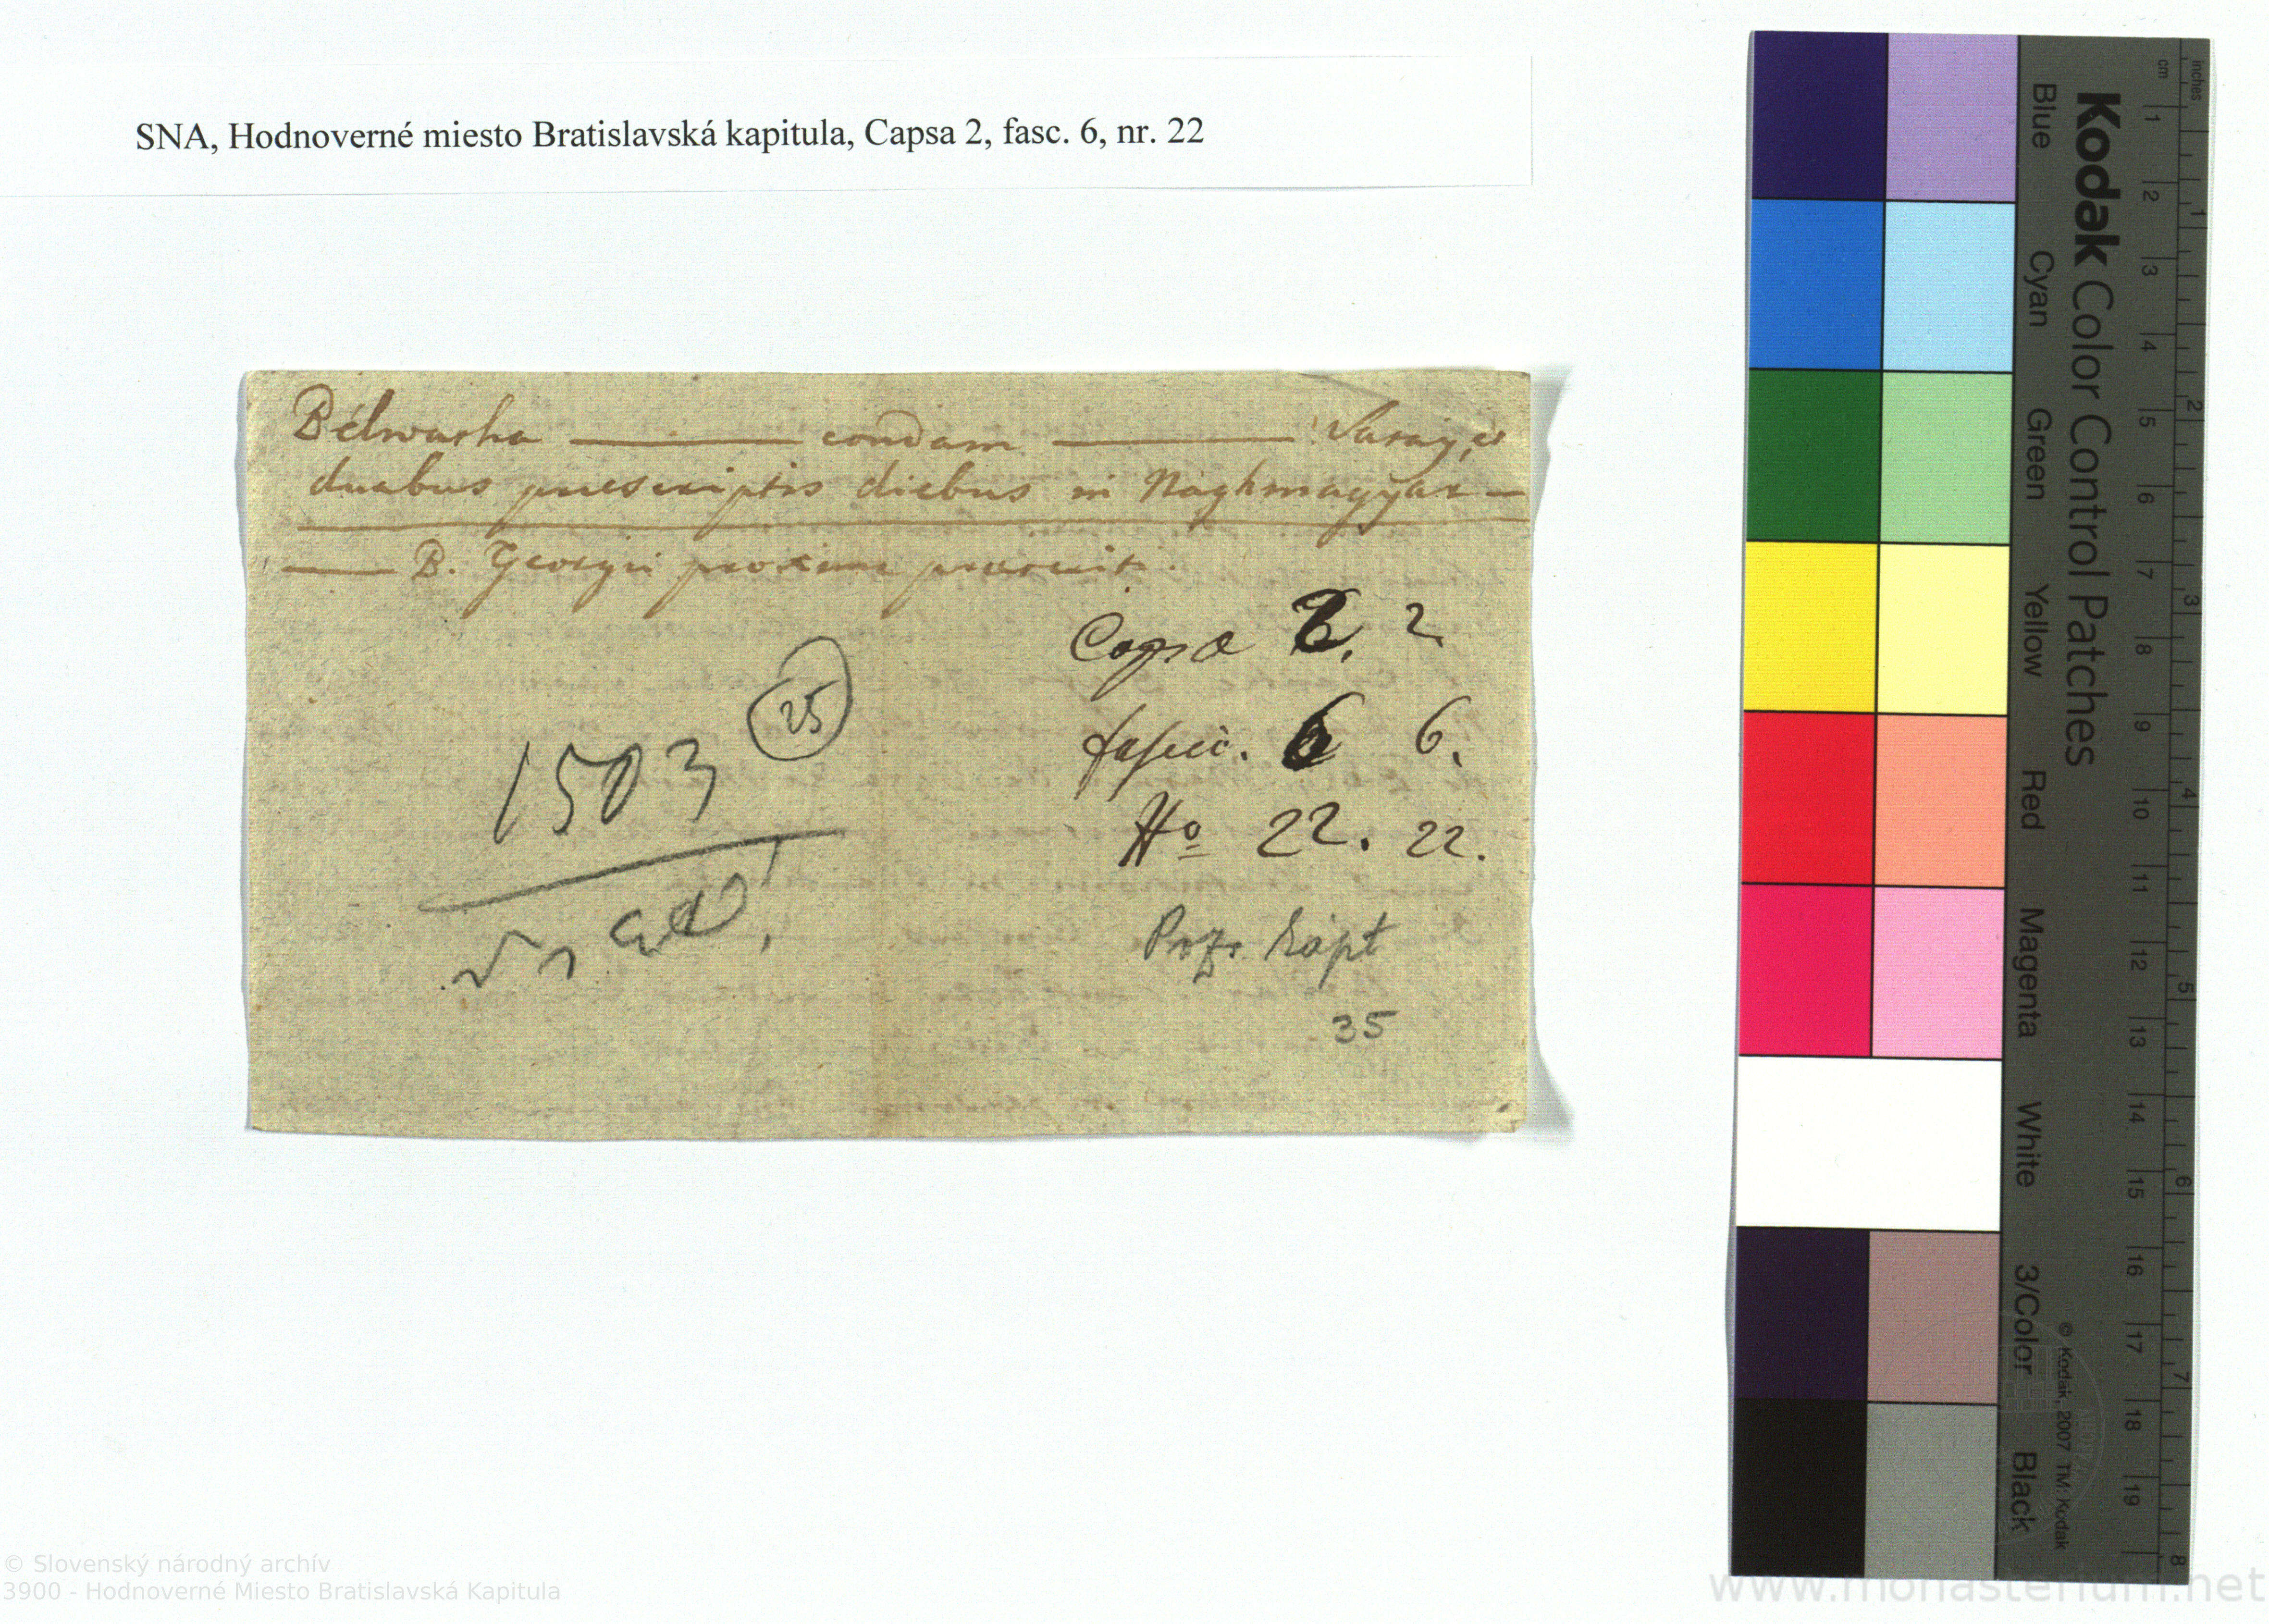 SNA, Hodnoverné miesto Bratislavská kapitula, Capsa 2, fasc. 6, nr. 22
condam
duabus prescriptis diebus in Naghmagyar —
— B. Georgii proxime
Capsa 2. 2
fascic. 6 6.
No 22. 22.
25
1503
kapt
35
Kodak Color Control Patches
Blue Cyan Green Yellow Red Magenta White 3/Color Black
© Kodak, 2007 TM: Kodak
cm 1 2 3 4 5 6 7 8 9 10 11 12 13 14 15 16 17 18 19
inches 1 2 3 4 5 6 7 8
© Slovenský národný archív
3900 - Hodnoverné Miesto Bratislavská Kapitula
www.monasterium.net